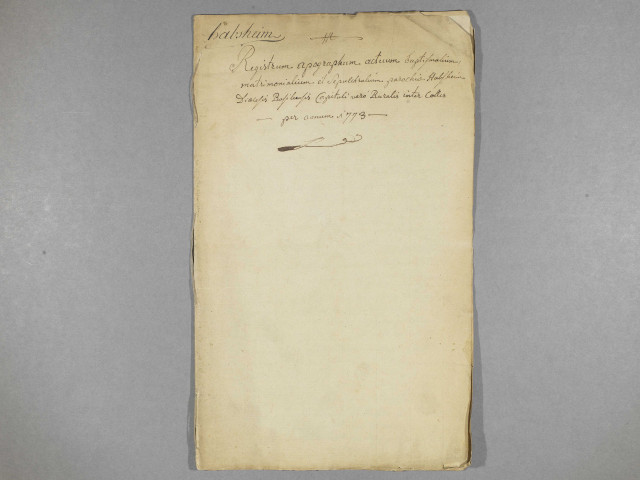 Balsheim
Registrum apographum actuum baptismalium
matrimonialium et sepulchralium parochiæ Balsheim
Diœcesis Basileensis Capituli vero Ruralis inter Colles
per annum 1773